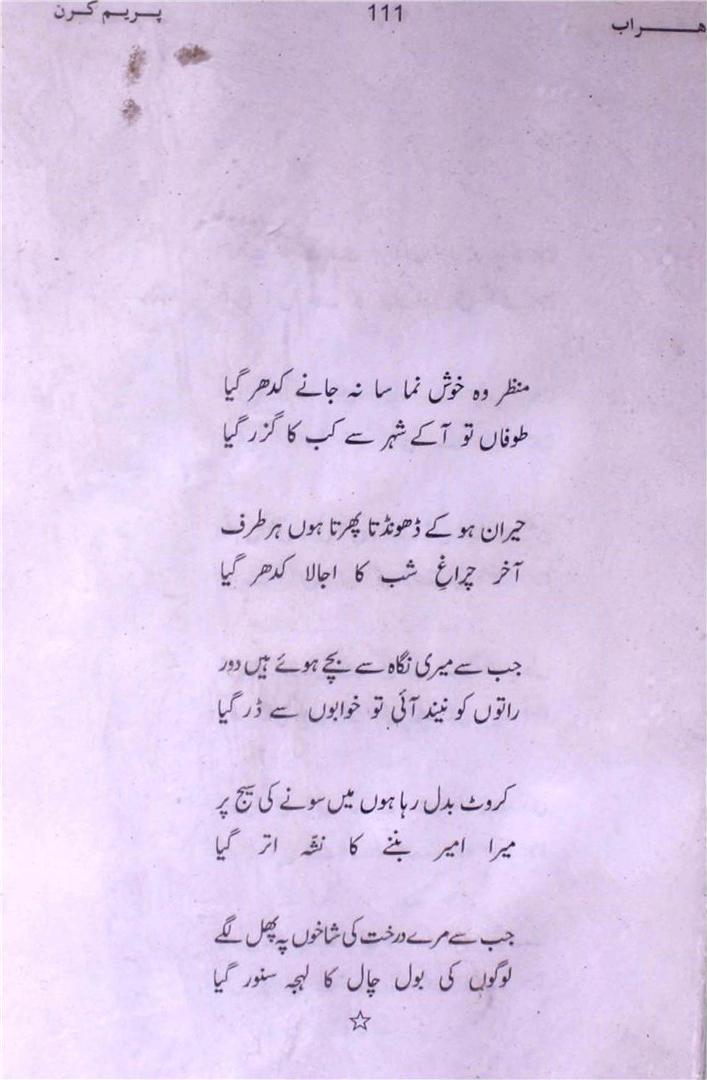 ھراب
111
پریم کرن
منظر وہ خوش نما سا نہ جانے کدھر گیا
طوفاں تو آ کے شہر سے کب کا گزر گیا
حیران ہو کے ڈھونڈتا پھرتا ہوں ہر طرف
آخر چراغِ شب کا اجالا کدھر گیا
جب سے میری نگاہ سے بچے ہوئے ہیں دور
راتوں کو نیند آئی تو خوابوں سے ڈر گیا
کروٹ بدل رہا ہوں میں سونے کی سیج پر
میرا امیر بننے کا نشّہ اتر گیا
جب سے مرے درخت کی شاخوں پہ پھل لگے
لوگوں کی بول چال کا لہجہ سنور گیا